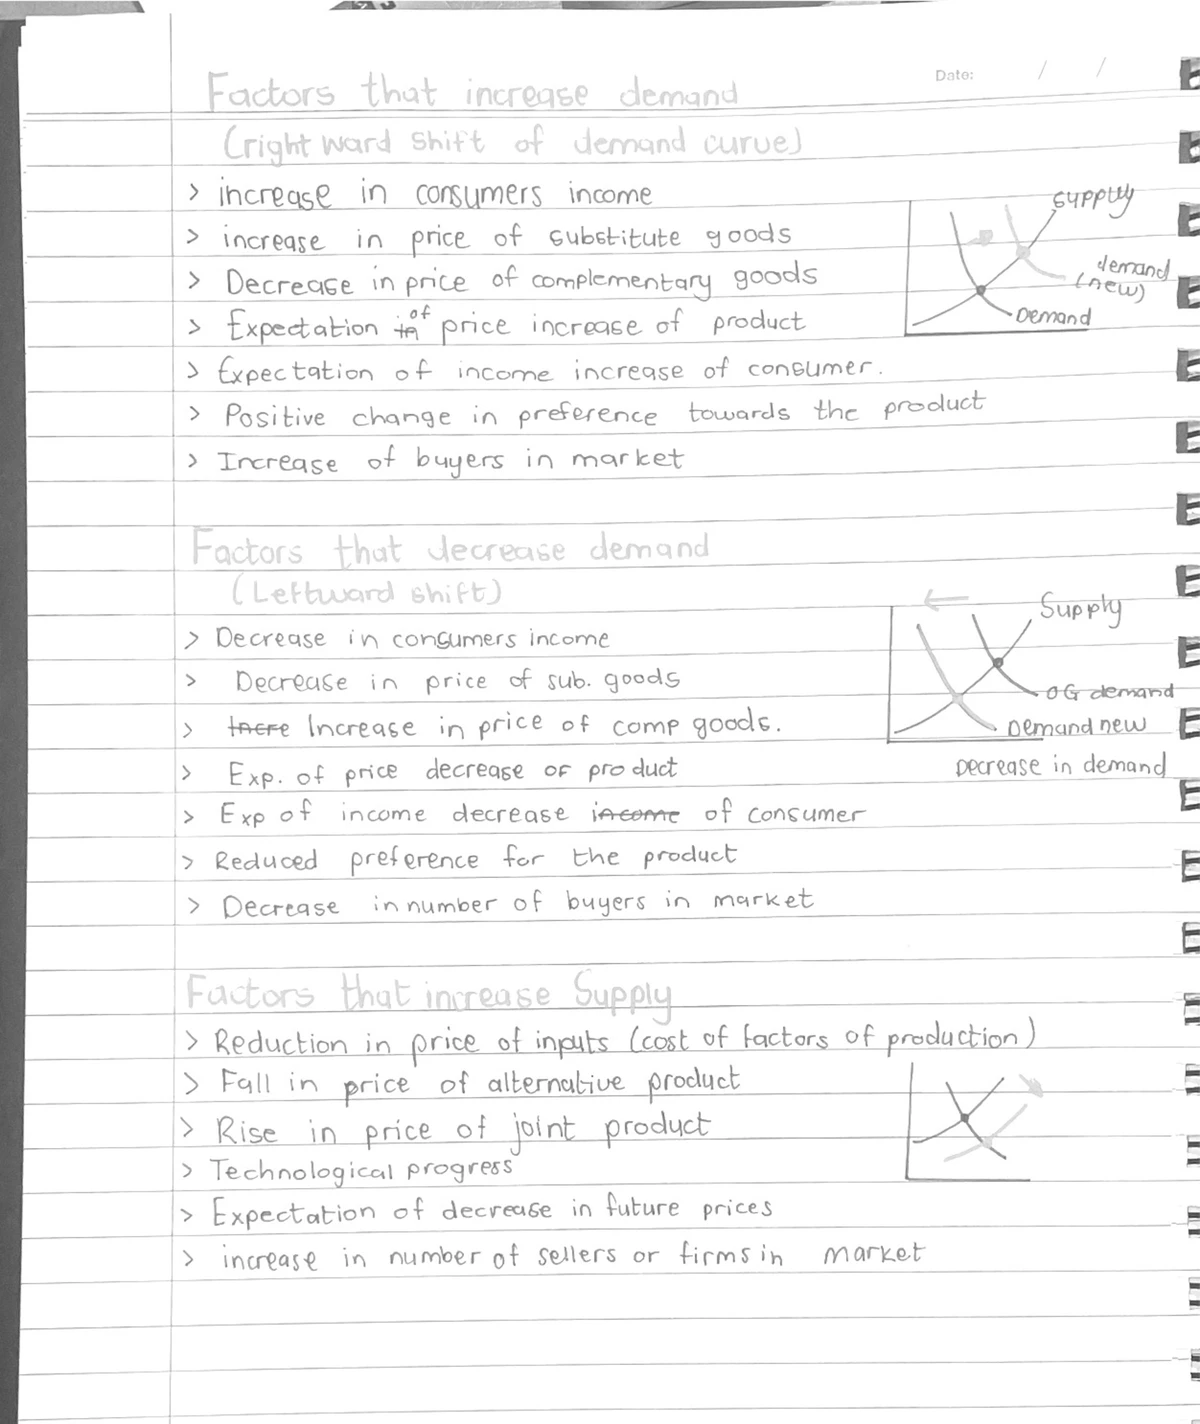 Date: / /
Factors that increase demand
(right ward shift of demand curve)
> increase in consumers income
> increase in price of substitute goods
> Decrease in price of complementary goods
> Expectation in of price increase of product
> Expectation of income increase of consumer.
> Positive change in preference towards the product
> Increase of buyers in market
supply
demand
(new)
Demand
Factors that decrease demand
(Leftward shift)
> Decrease in consumers income
> Decrease in price of sub. goods
> Incre Increase in price of comp goods.
> Exp. of price decrease of product
> Exp of income decrease income of consumer
> Reduced preference for the product
> Decrease in number of buyers in market
Supply
OG demand
Demand new
Decrease in demand
Factors that increase Supply
> Reduction in price of inputs (cost of factors of production)
> Fall in price of alternative product
> Rise in price of joint product
> Technological progress
> Expectation of decrease in future prices
> increase in number of sellers or firms in market